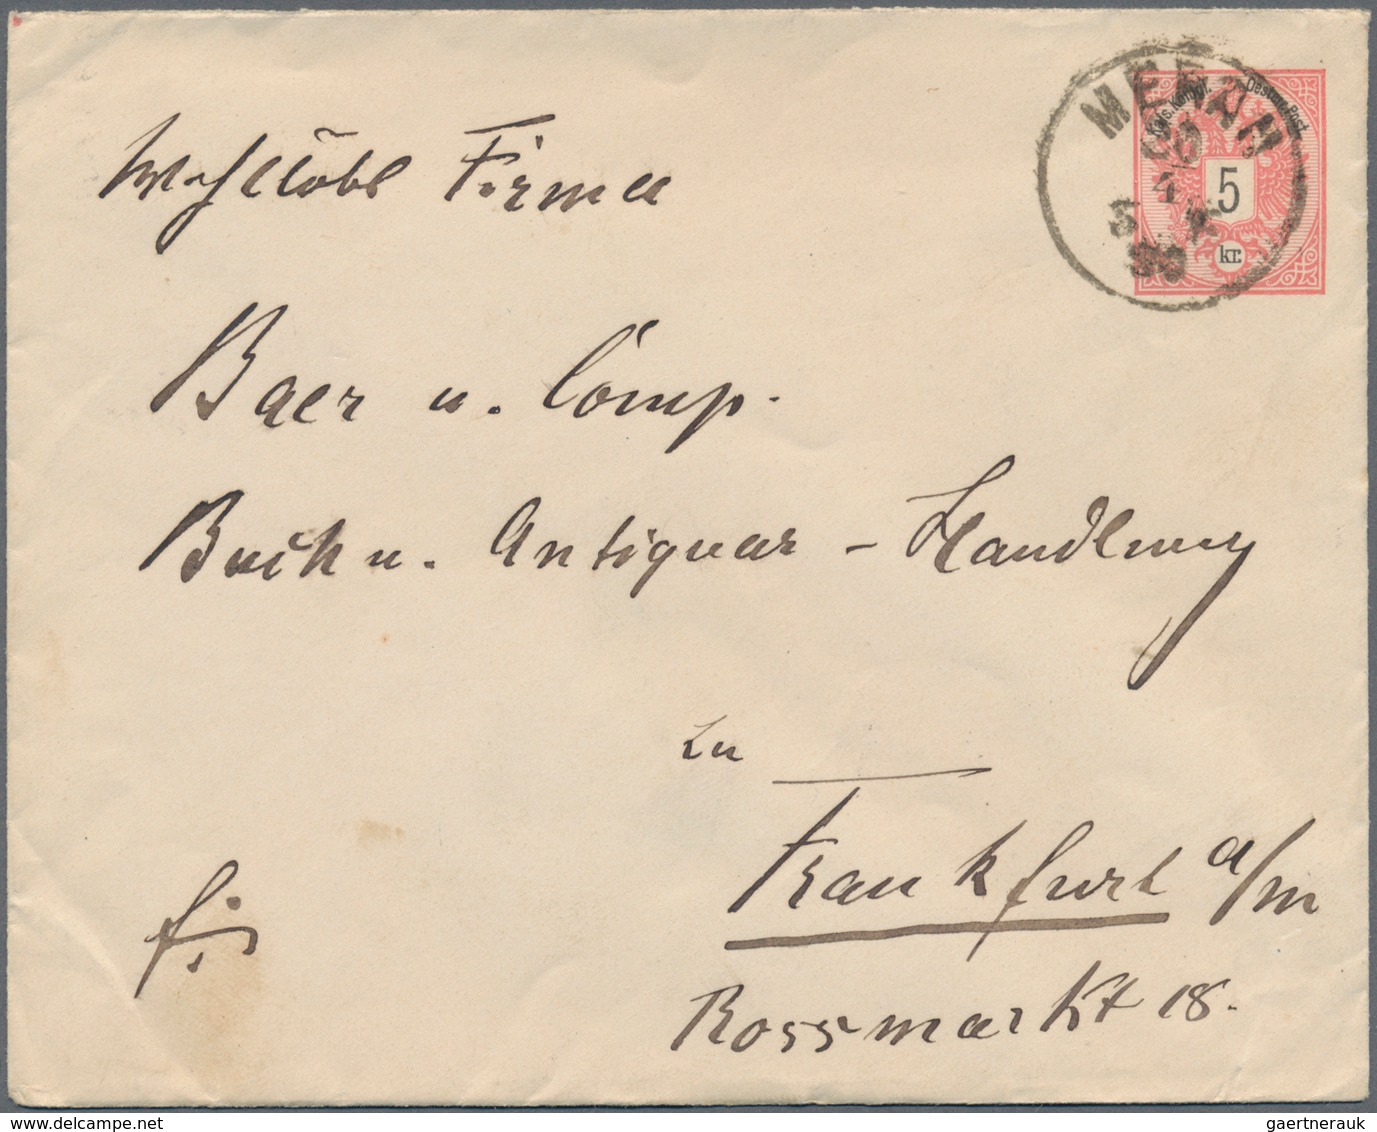 MERAN
Kais. Königl. Oesterr. Post.
5
kr.
Wohllöbl Firma
Baer u. Comp.
Buch u. Antiquar - Handlung
zu
Frankfurt a/m
Rossmarkt 18.
gaertnerauk
delcampe.net